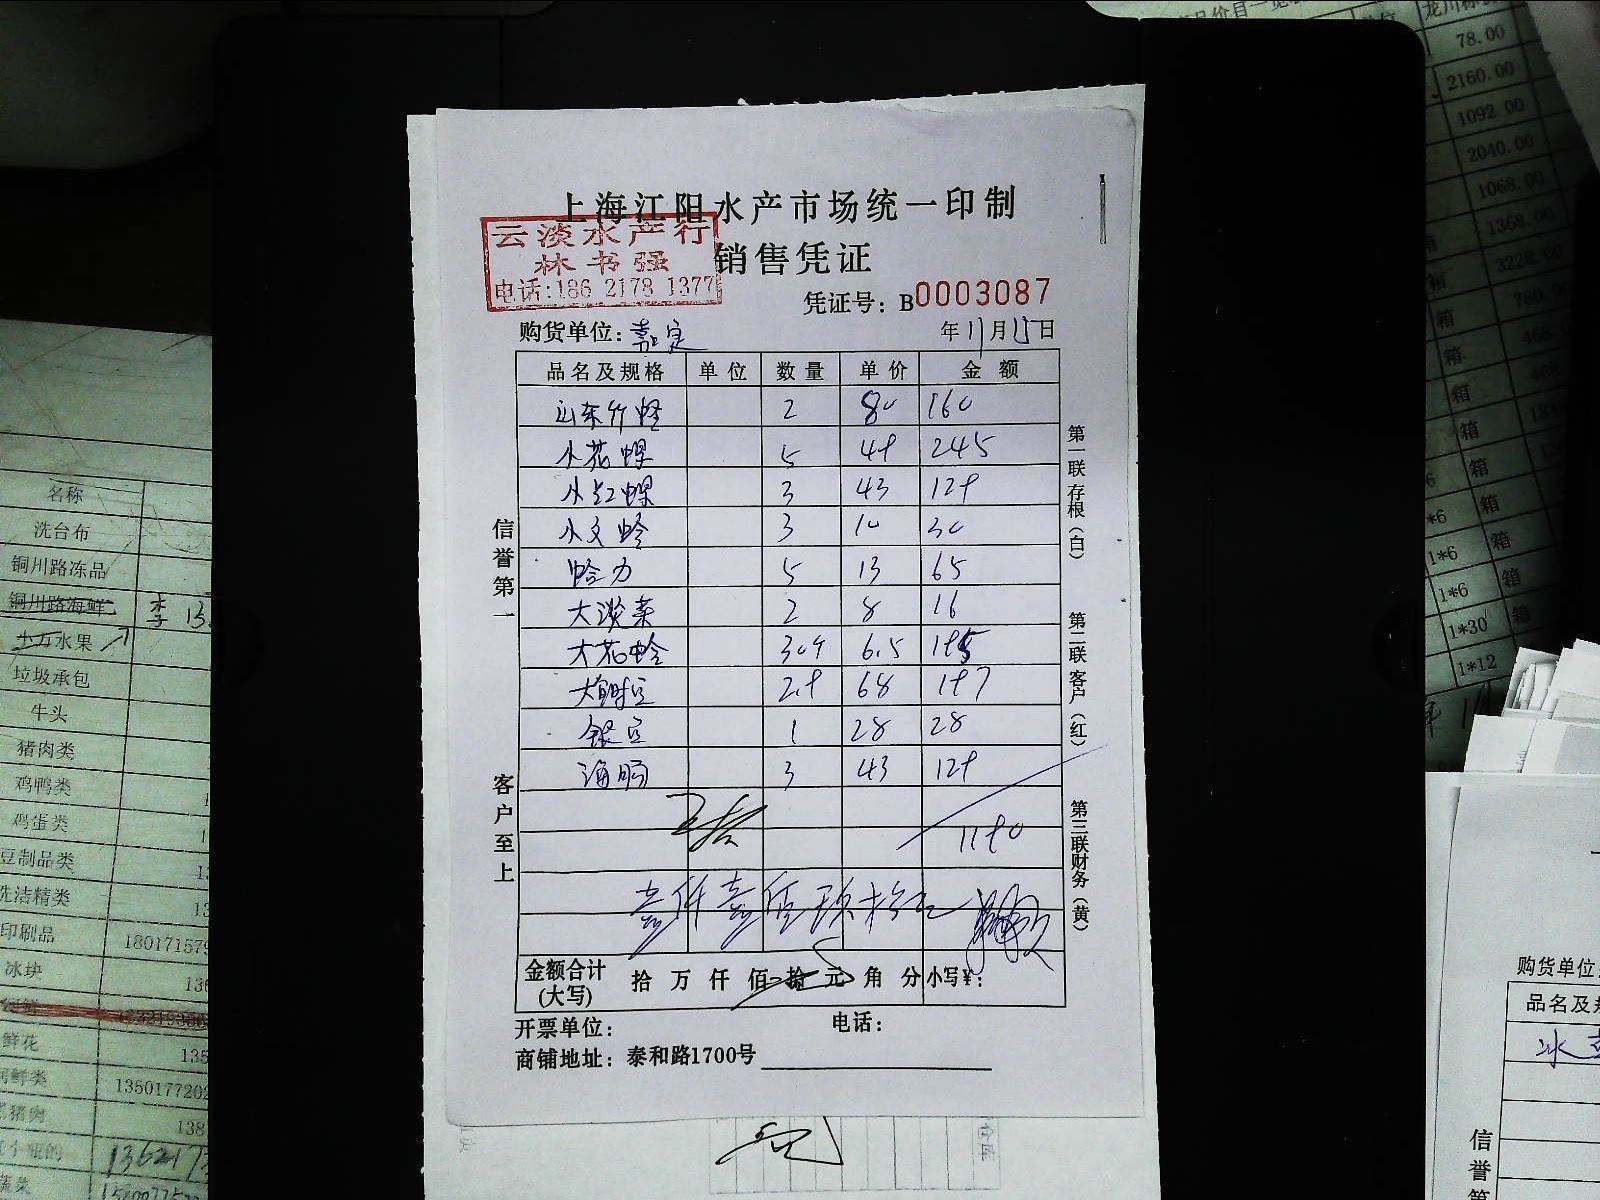 上海江阳水产市场统一印制
云淡水产行
林书强
电话:186 2178 1377
销售凭证
凭证号：B0003087
购货单位：嘉定 年11月15日
品名及规格 单位 数量 单价 金额
山东竹蛏 2 80 160
小花螺 5 49 245
小红螺 3 43 129
小文蛤 3 10 30
蛤力 5 13 65
大淡菜 2 8 16
大花蛤 30斤 6.5 195
2.9 68 197
银豆 1 28 28
海肠 3 43 129
1190
壹仟壹佰玖拾元
金额合计(大写) 拾 万 仟 佰 拾 元 角 分 小写¥：
开票单位： 电话：
商铺地址：泰和路1700号
信誉第一
客户至上
第一联存根（白）
第二联客户（红）
第三联财务（黄）
名称
洗台布
铜川路冻品
铜川路海鲜 李 13
水果
垃圾承包
牛头
猪肉类
鸡鸭类
鸡蛋类
豆制品类
洗洁精类
印刷品 18017157
冰块
鲜花 135
1350177202
猪肉 138
78.00
2160.00
1092.00
2040.00
1068.00
1368.00
箱 3228.00
箱 780.00
箱
箱
箱
箱
箱
1*6 箱
1*6 箱
1*30 箱
1*12
购货单位
品名及规
信誉第